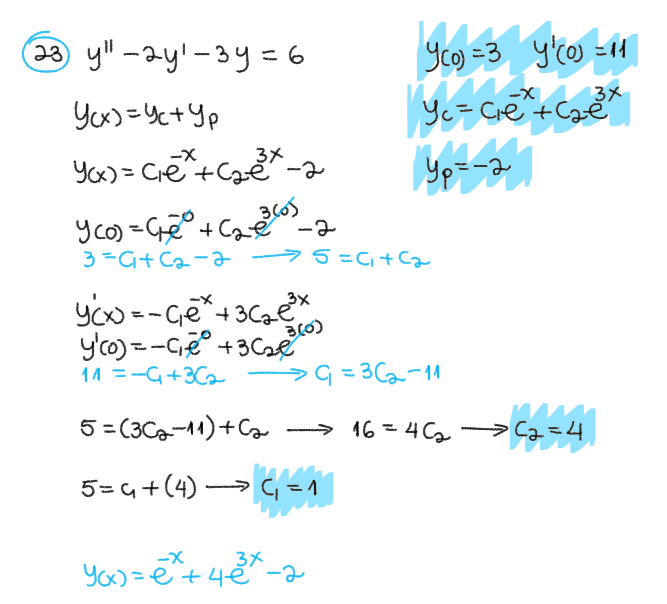 23 y'' - 2y' - 3y = 6 y(0) = 3 y'(0) = 11
y(x) = yc + yp yc = c₁e⁻ˣ + c₂e³ˣ
y(x) = c₁e⁻ˣ + c₂e³ˣ - 2 yp = -2
y(0) = c₁e⁻⁰ + c₂e³⁽⁰⁾ - 2
3 = c₁ + c₂ - 2 → 5 = c₁ + c₂
y'(x) = -c₁e⁻ˣ + 3c₂e³ˣ
y'(0) = -c₁e⁻⁰ + 3c₂e³⁽⁰⁾
11 = -c₁ + 3c₂ → c₁ = 3c₂ - 11
5 = (3c₂ - 11) + c₂ → 16 = 4c₂ → c₂ = 4
5 = c₁ + (4) → c₁ = 1
y(x) = e⁻ˣ + 4e³ˣ - 2